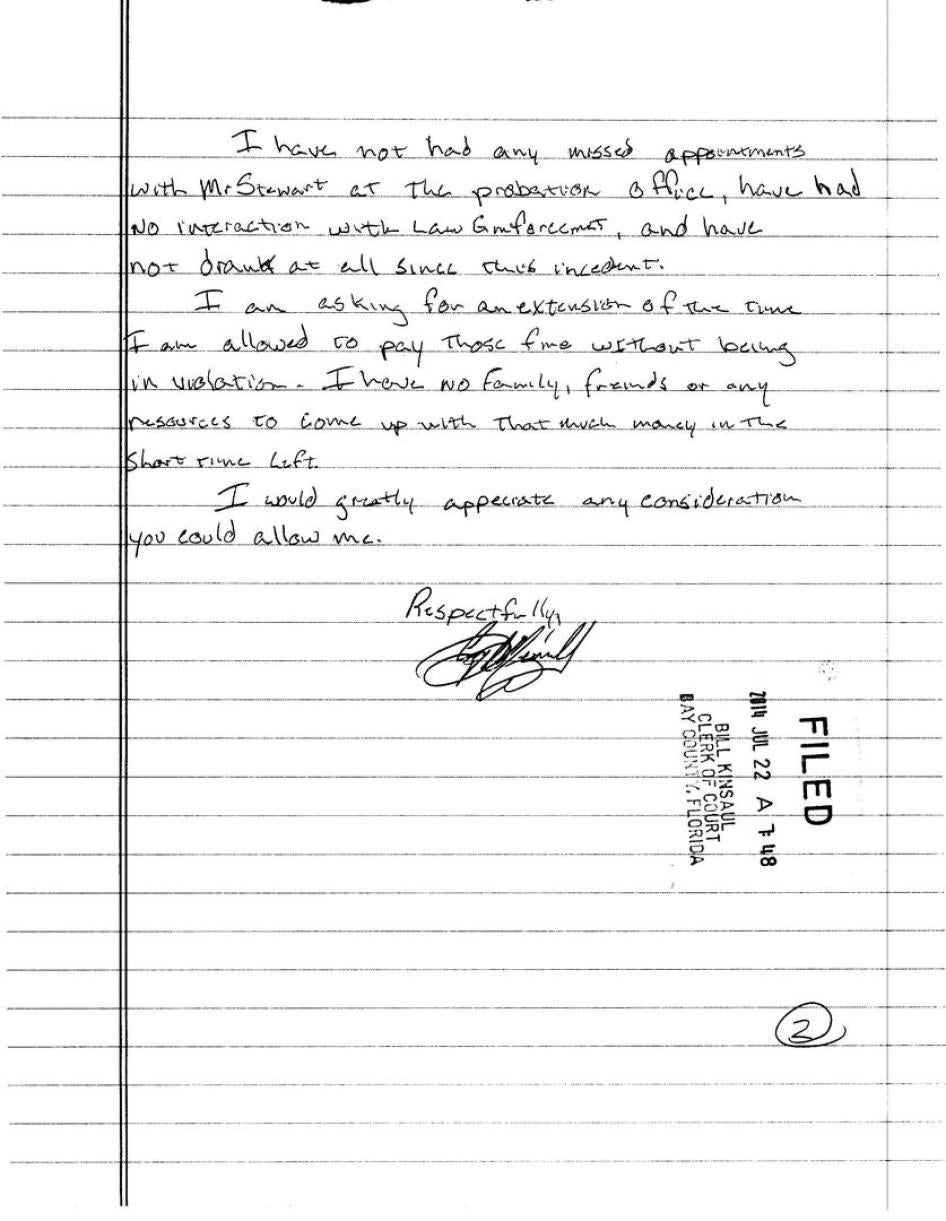 I have not had any missed appointments
with Mr Stewart at the probation office, have had
No interaction with Law Emforcemet, and have
not drank at all since this incedent.
I am asking for an extension of the time
I am allowed to pay those fine without being
in violation. I have no family, freinds or any
resources to come up with that much money in the
short time left.
I would greatly appeciate any consideration
you could allow me.
Respectfully,
FILED
2014 JUL 22 A 7:48
BILL KINSAUL
CLERK OF COURT
BAY COUNTY, FLORIDA
2